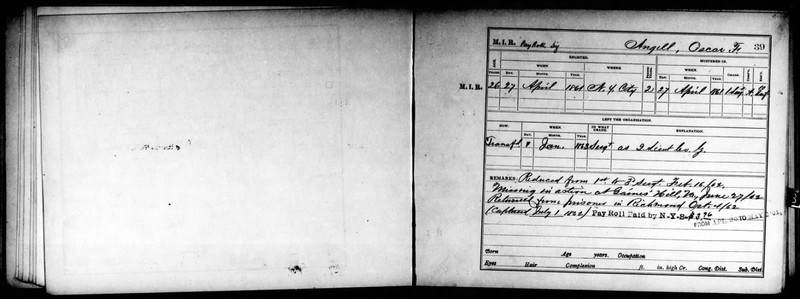 M.I.R. Pay Roll Sig Angell, Oscar F. 39
AGE. ENLISTED. MUSTERED IN.
WHEN. WHERE. WHEN. GRADE. COMP'Y. REG'T.
YEARS. DAY. MONTH. YEAR. DAY. MONTH. YEAR.
M.I.R. 26 27 April 1861 N. Y. City 2 27 April 1861 1 Sergt A
LEFT THE ORGANIZATION.
HOW. WHEN. IN WHAT GRADE. EXPLANATION.
DAY. MONTH. YEAR.
Transf'd 8 Jan. 1863 Sergt as 2 Lieut Co. G.
REMARKS: Reduced from 1st to 3d Sergt. Feb. 16/62.
Missing in action at Gaines' Hill, Va, June 27/62
Returned from prisoner in Richmond Oct. 4/62
(Captured July 1 1862) Pay Roll Paid by N-Y-S-$3.76
Born Age years. Occupation
Eyes Hair Complexion ft. in. high Cr. Cong. Dist. Sub. Dist.